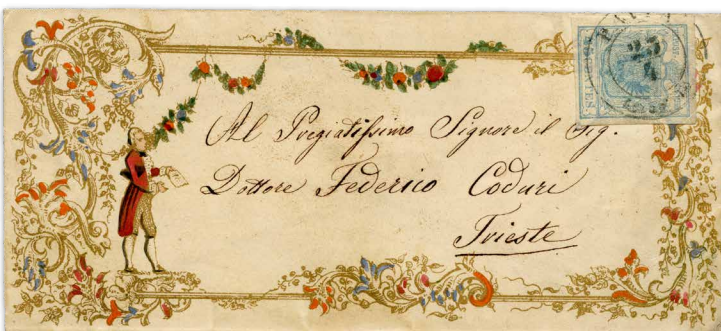 Al Pregiatissimo Signore il Sig.
Dottore Federico Coduri
Trieste